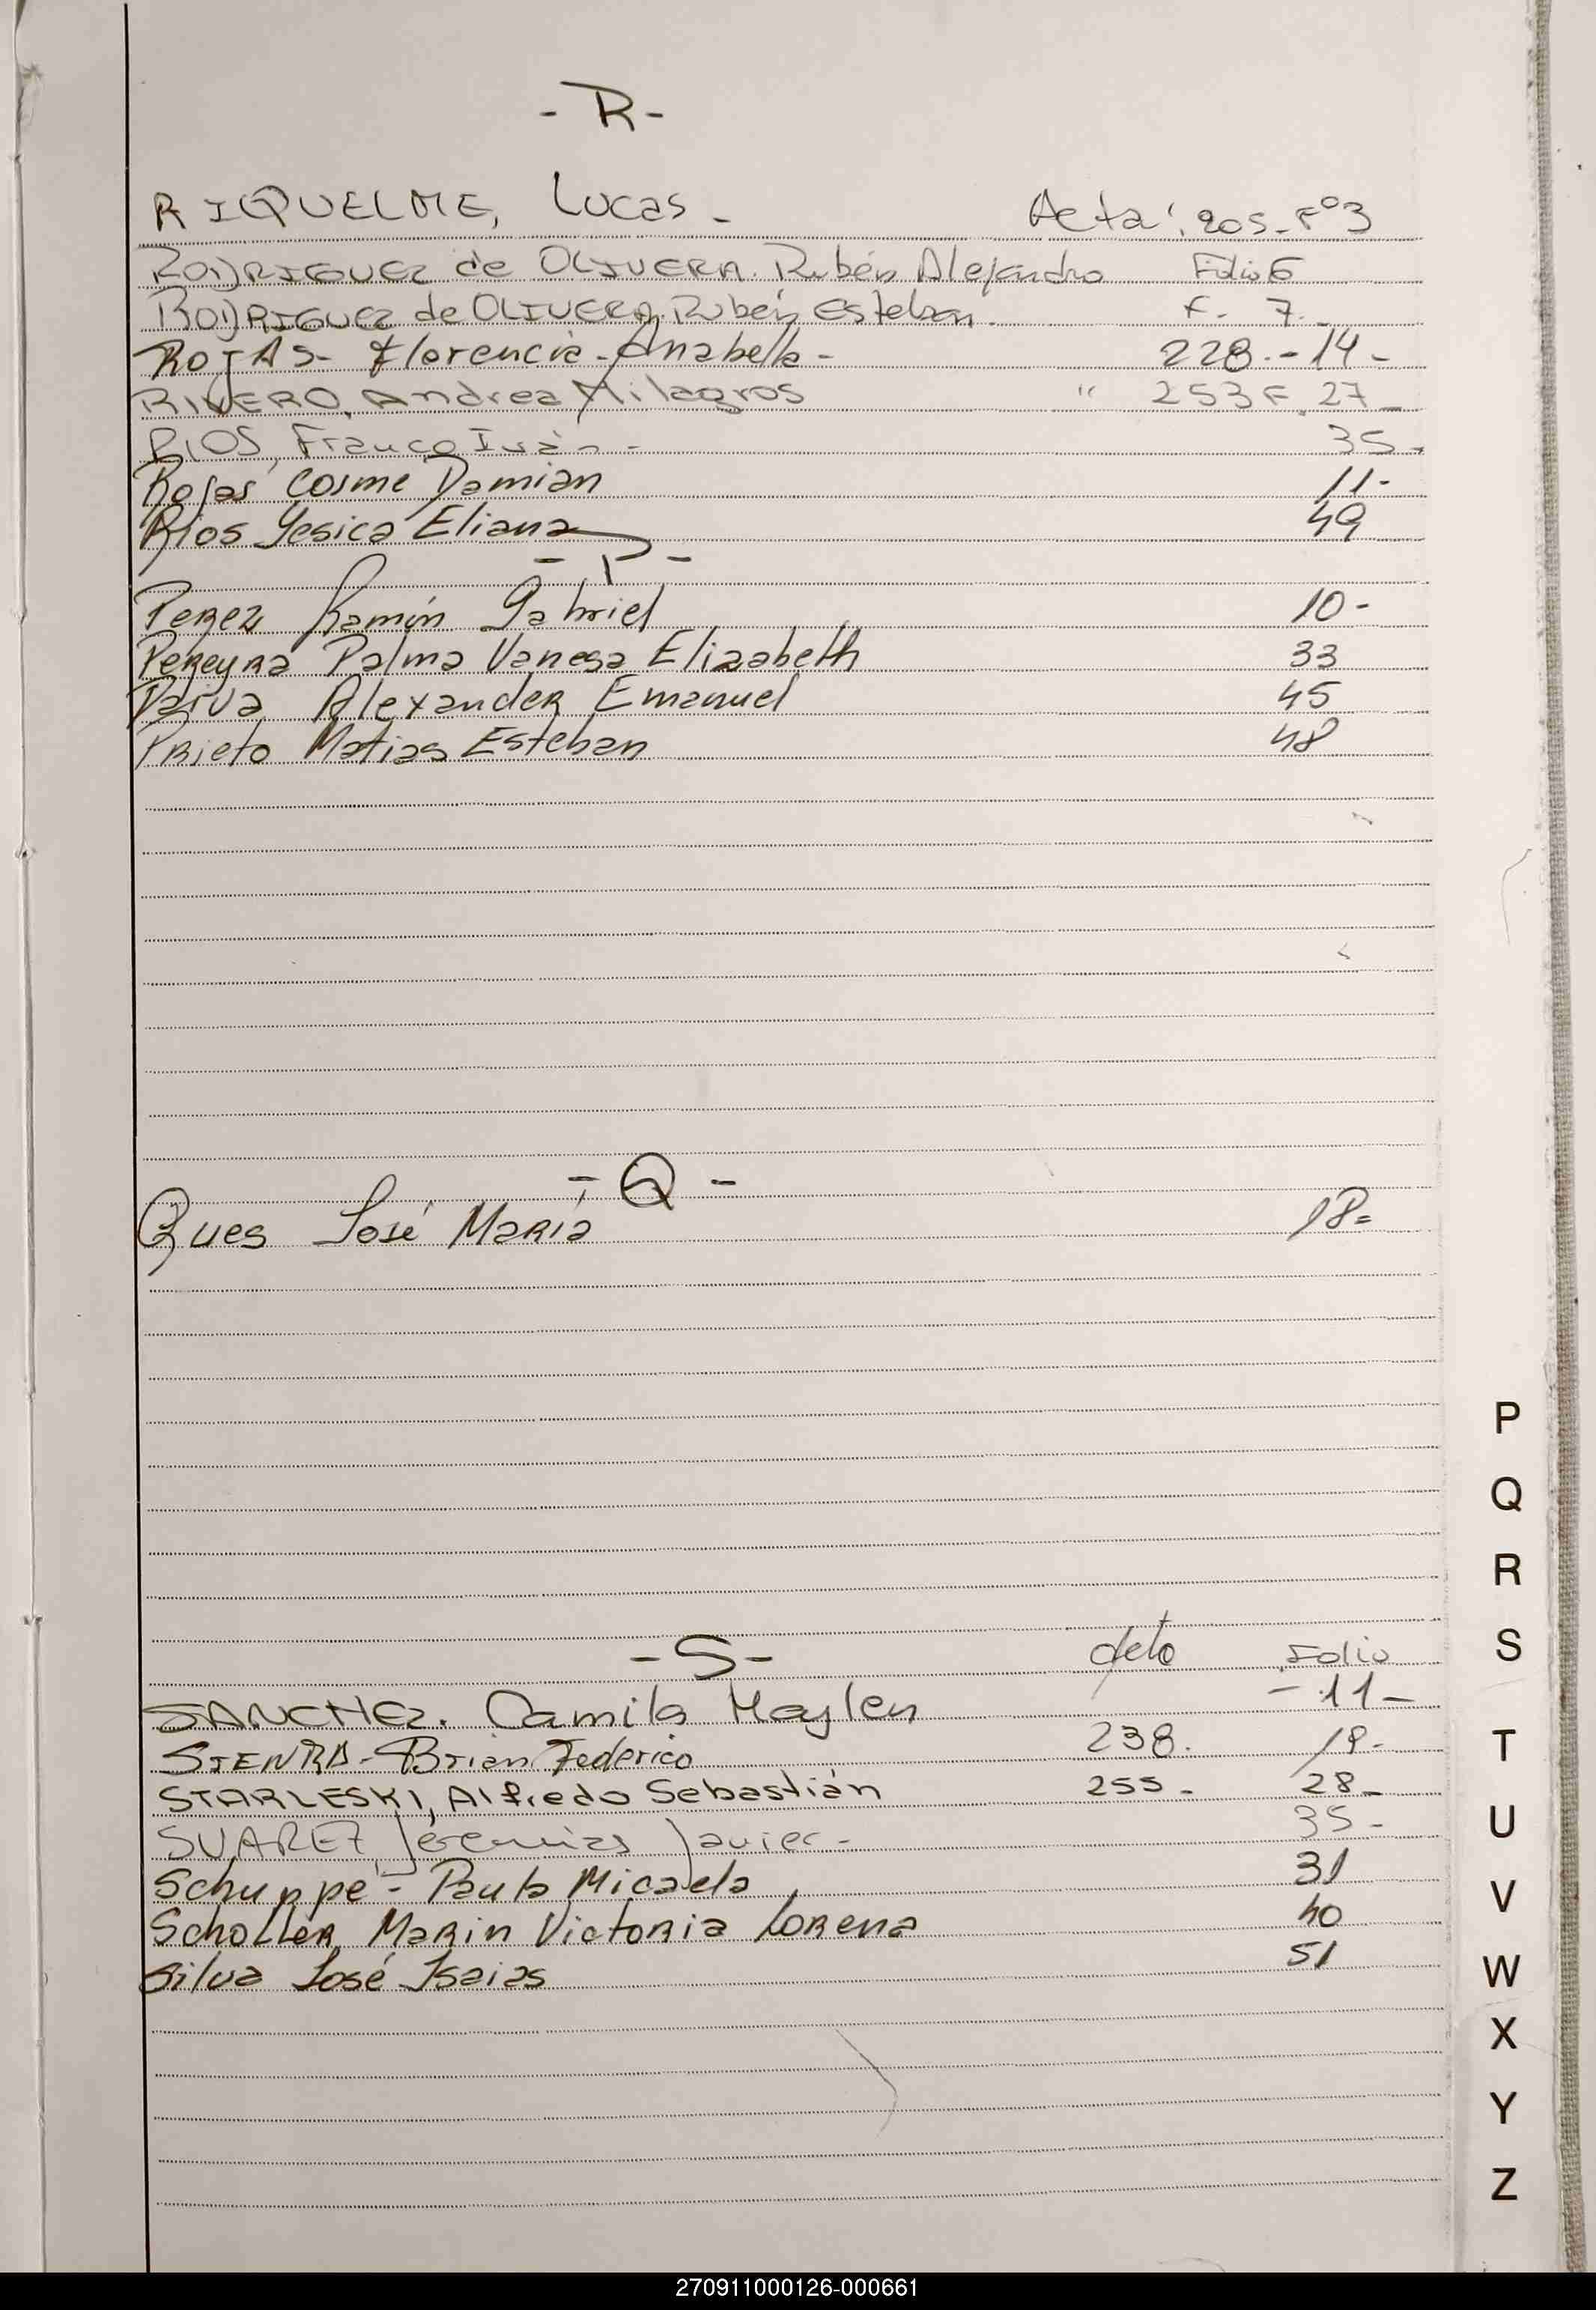 - R -
RIQUELME, Lucas - Acta: 205 - Fº3
RODRIGUEZ de OLIVERA. Rubén Alejandro Folio 6
RODRIGUEZ de OLIVERA. Rubén Esteban. F. 7.
ROJAS - Florencia - Anabella - 228. - 14 -
RIVERO, Andrea Milagros " 253 F. 27 -
RIOS, Franco Iván - 35 -
Rojas Cosme Damian 11 -
Rios Yesica Eliana 49
- P -
Perez Ramón Gabriel 10 -
Pereyra Palma Vanesa Elizabeth 33
Paiva Alexander Emanuel 45
Prieto Matias Esteban 48
- Q -
Ques José María 18 =
- S - Acta Folio
SANCHEZ. Camila Maylen - 11 -
SIENRA - Brian Federico 238. 19 -
STARLESKI, Alfredo Sebastián 255 - 28 -
SUAREZ, Jeremías Javier - 35 -
Schuppe - Paula Micaela 31
Scholler Marin Victoria Lorena 40
Silva José Isaias 51
P
Q
R
S
T
U
V
W
X
Y
Z
270911000126-000661